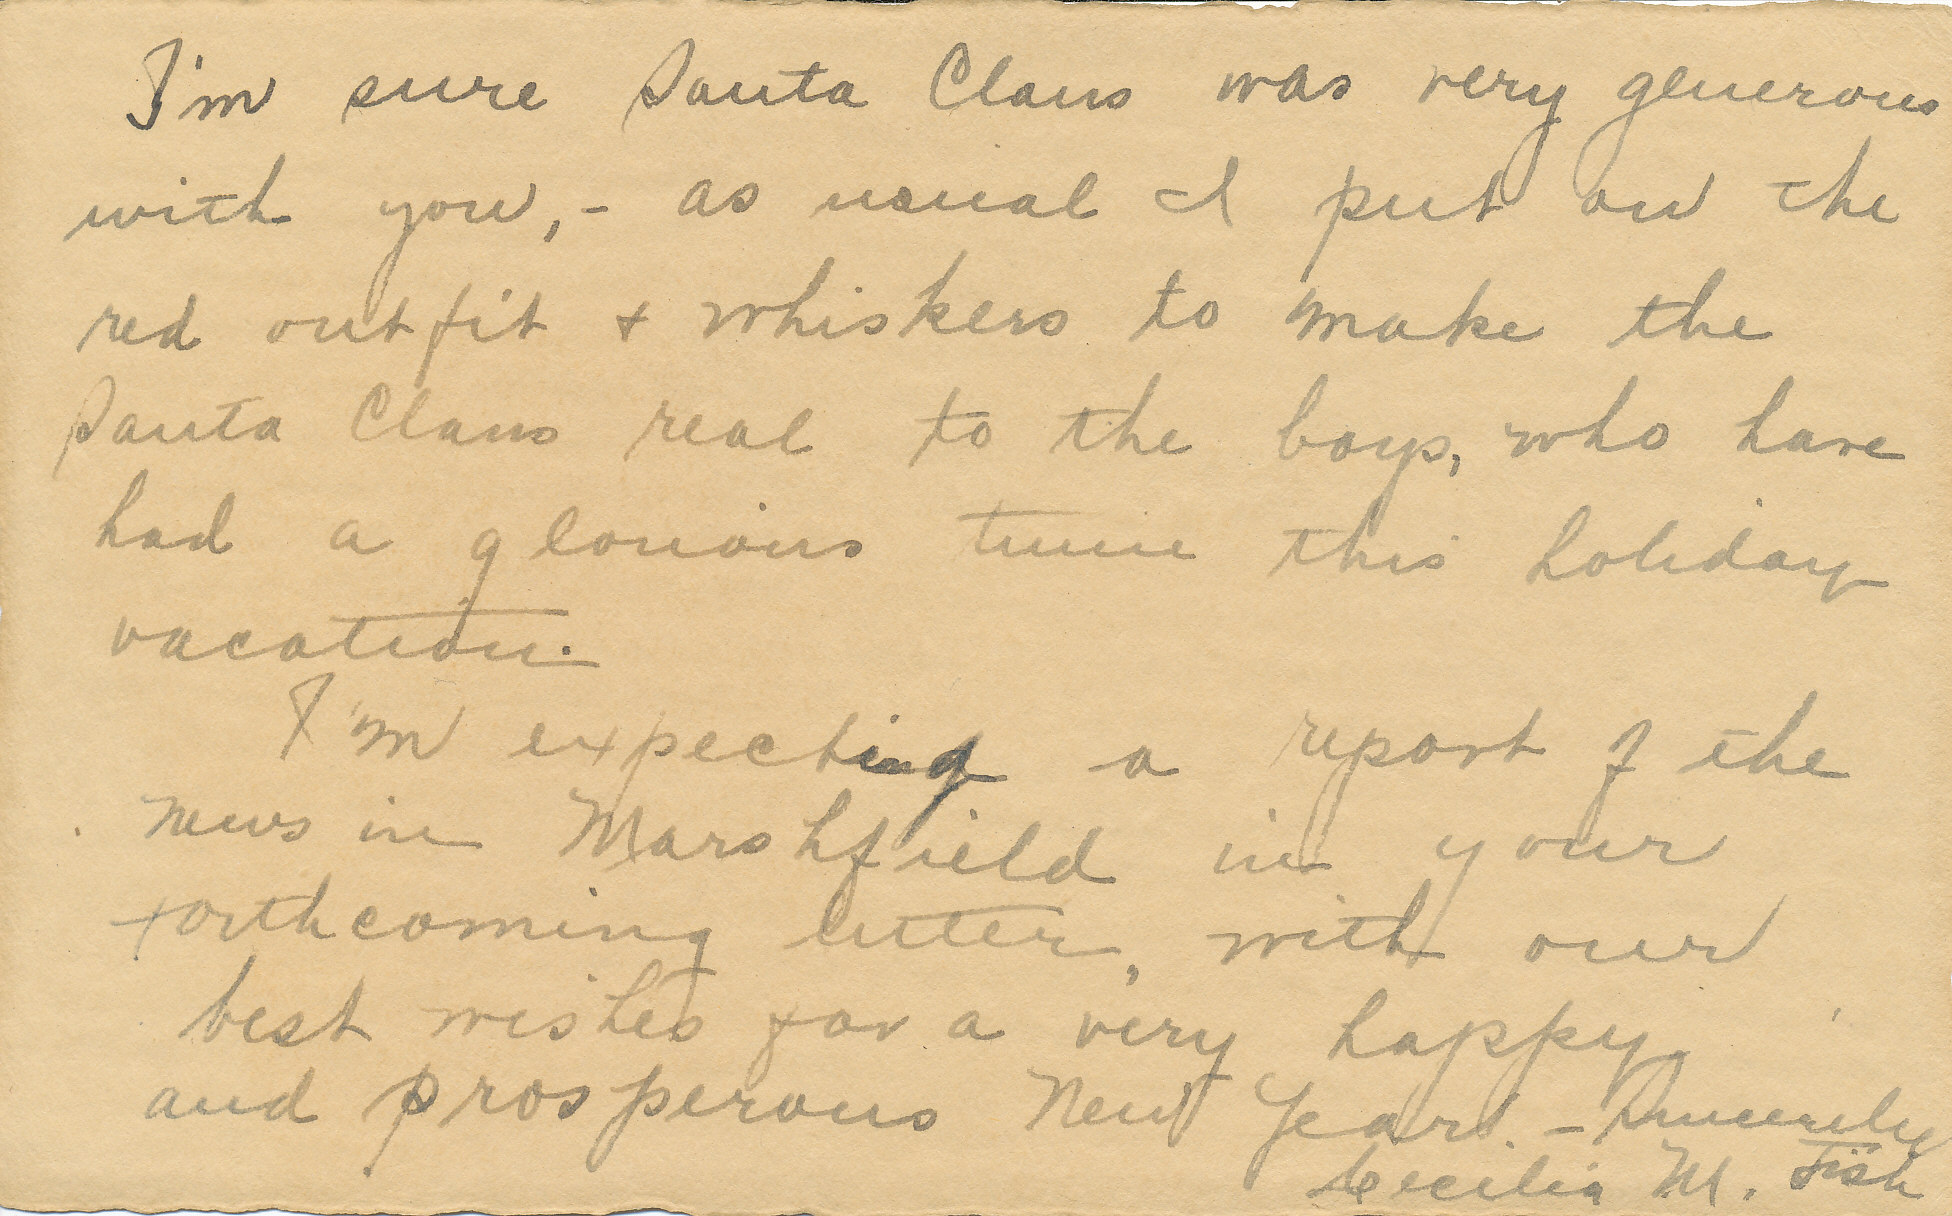 I'm sure Santa Claus was very generous
with you, - as usual I put on the
red outfit + whiskers to make the
Santa Claus real to the boys, who have
had a glorious time this holiday
vacation.
I'm expecting a report of the
news in Marshfield in your
forthcoming letter, with our
best wishes for a very happy
and prosperous New Year. - Sincerely
Cecilia M. Fish